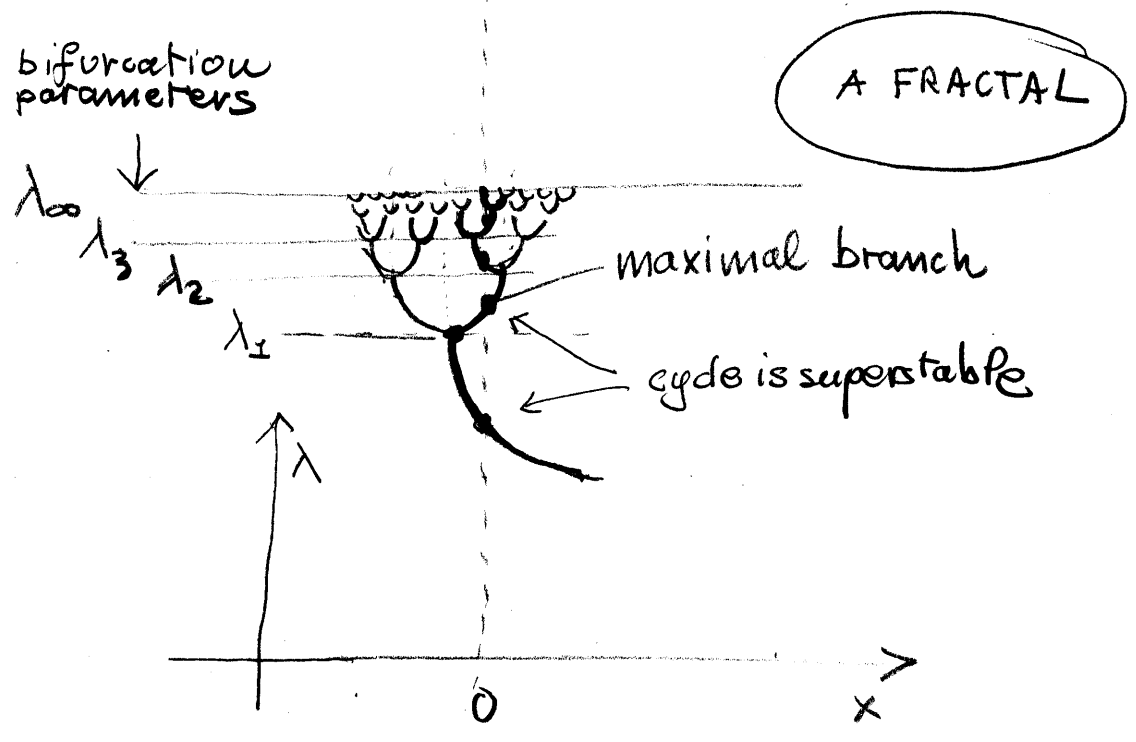 bifurcation
parameters
A FRACTAL
λ∞
λ3
λ2
λ1
maximal branch
cycle is superstable
λ
0
x